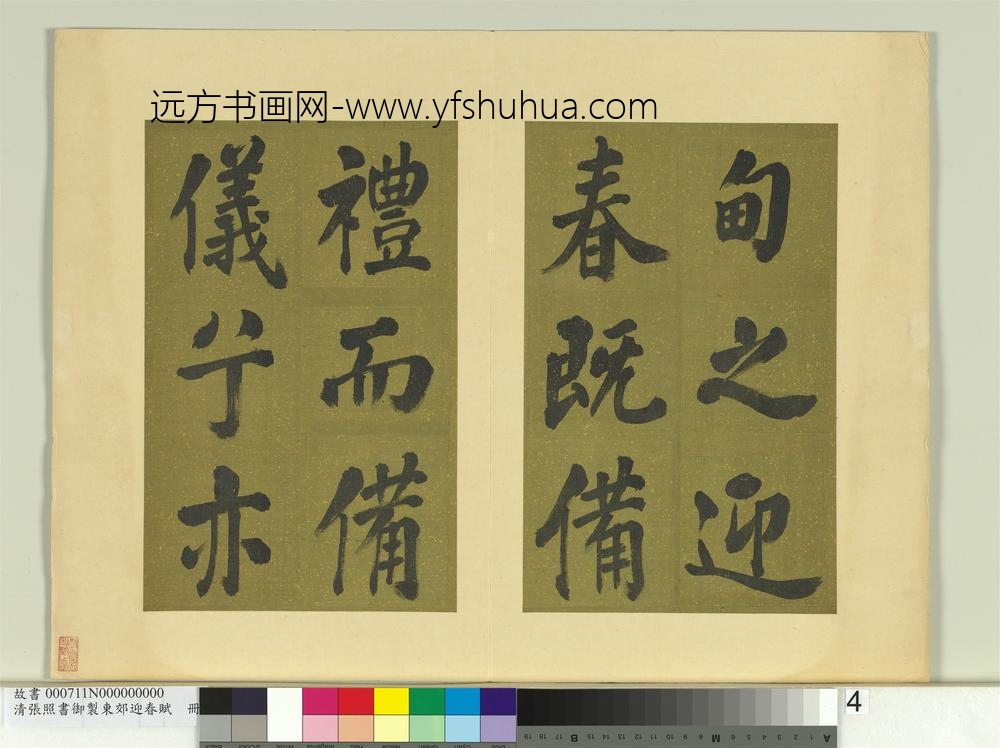 远方书画网-www.yfshuhua.com
甸之迎
春既備
禮而備
儀兮亦
故書 000711N000000000
清張照書御製東郊迎春賦 冊
4